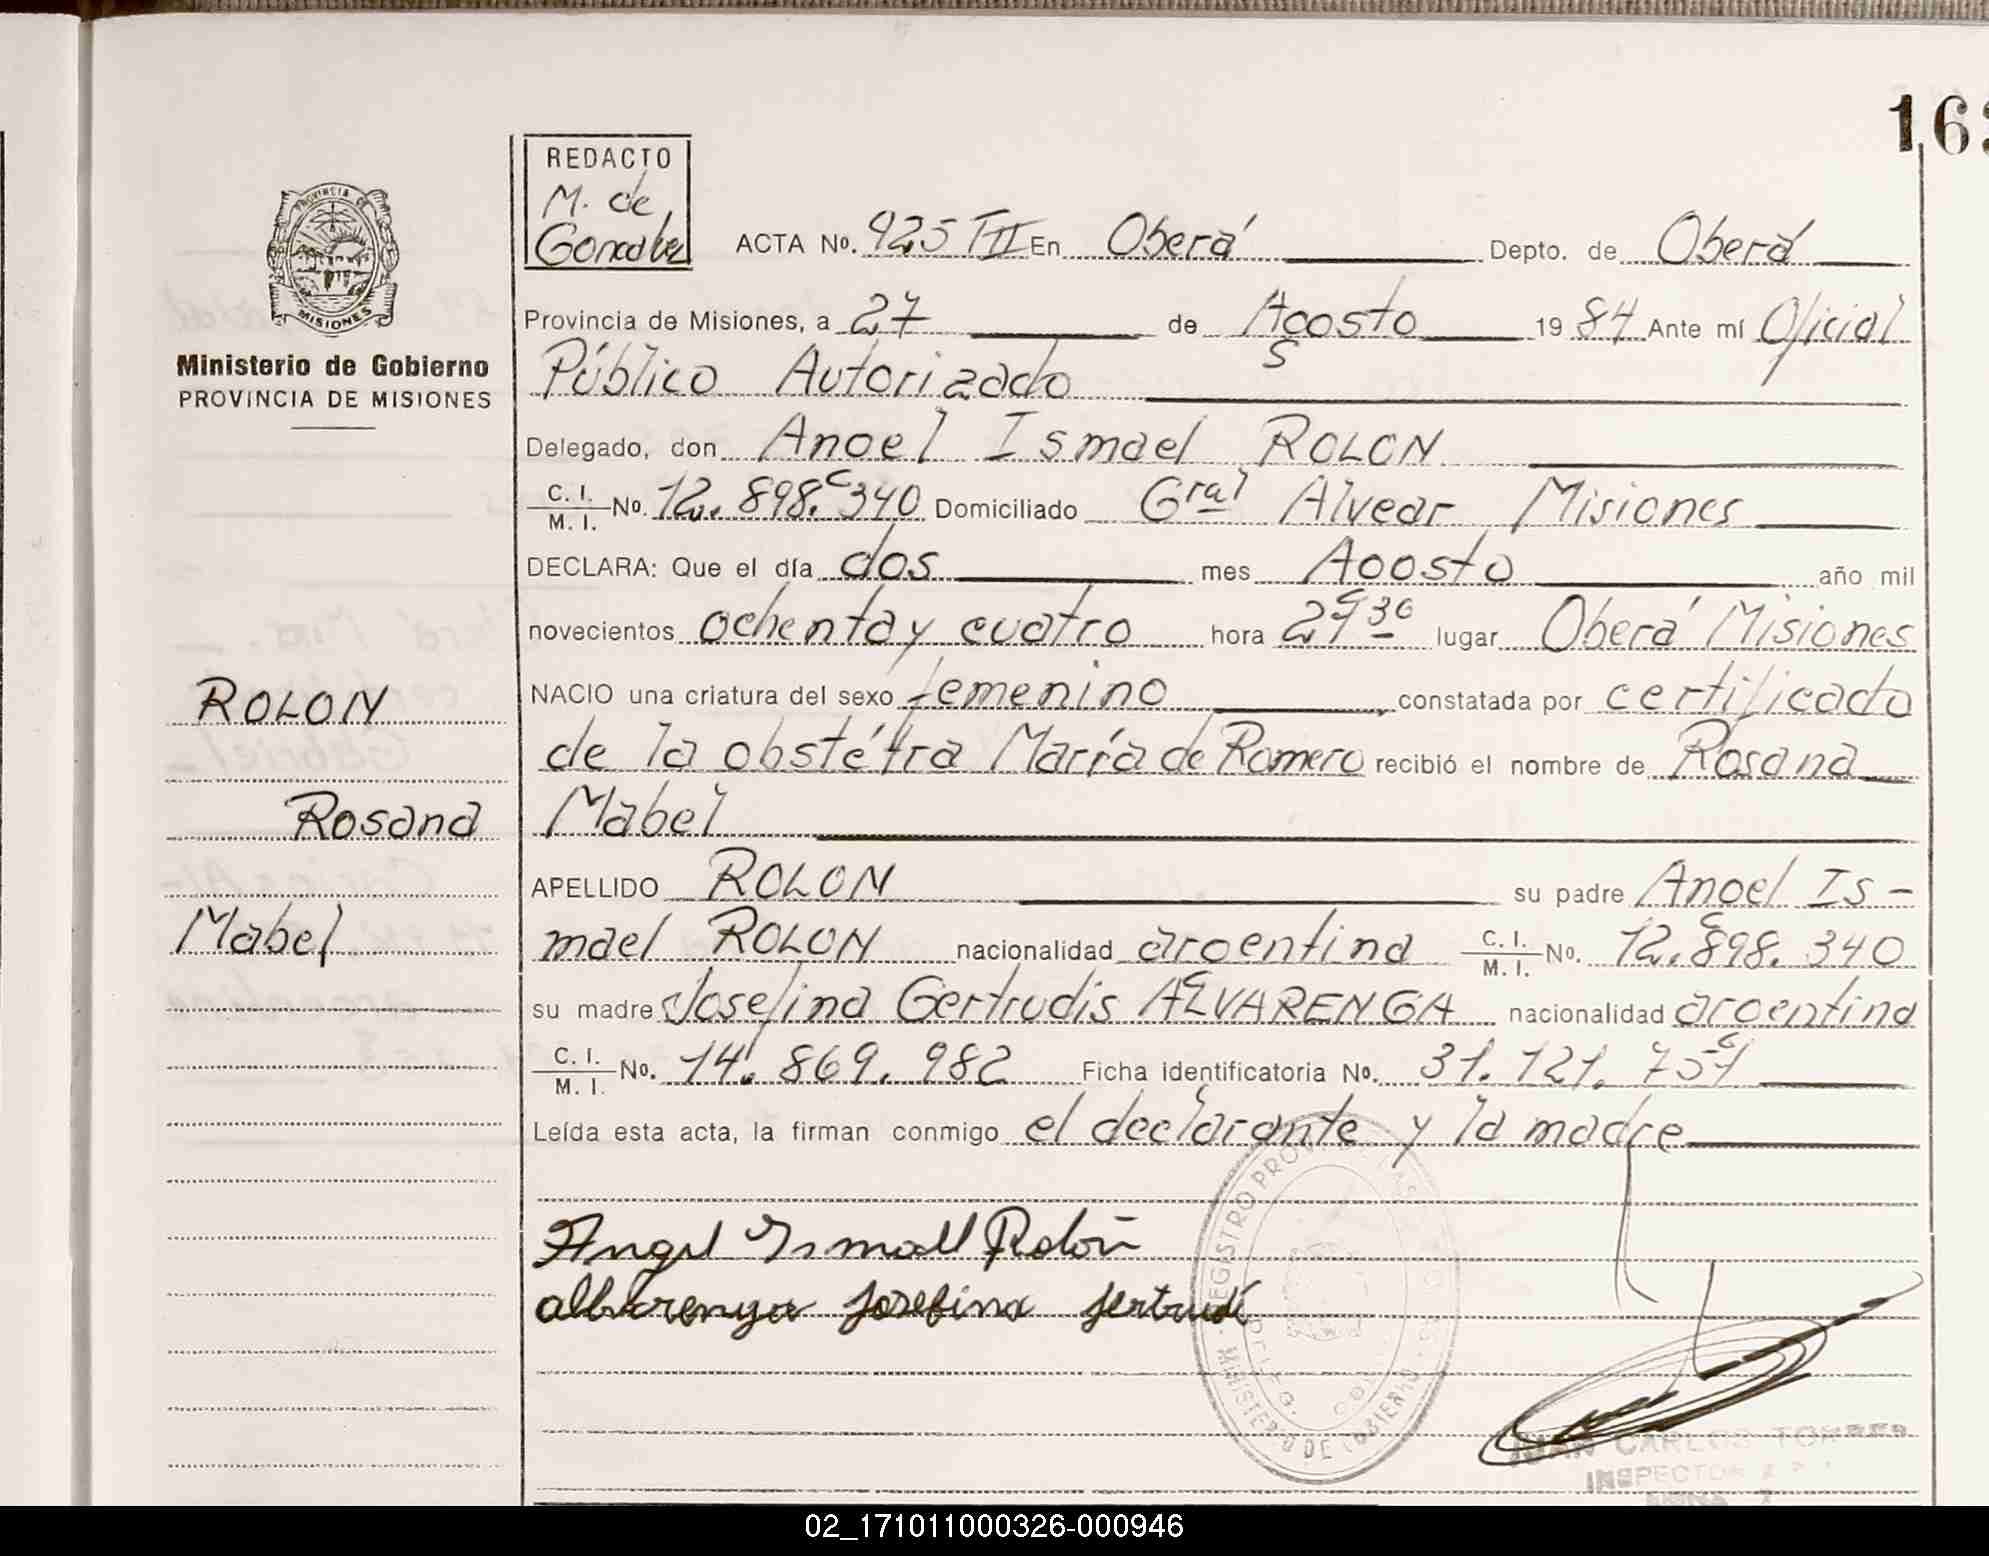 163
REDACTO
M. de
Gonzalez
ACTA No. 925 TIII En Oberá Depto. de Oberá
PROVINCIA DE
MISIONES
Provincia de Misiones, a 27 de Agosto 1984 Ante mí Oficial
Ministerio de Gobierno
PROVINCIA DE MISIONES
Público Autorizado
Delegado, don Angel Ismael ROLON
C. I. M. I. No. 12.898.340 Domiciliado Gral Alvear Misiones
DECLARA: Que el día dos mes Agosto año mil
novecientos ochenta y cuatro hora lugar Oberá Misiones
ROLON
NACIO una criatura del sexo femenino, constatada por certificado
de la obstétra María de Romero recibió el nombre de Rosana
Rosana
Mabel
APELLIDO ROLON su padre Angel Is-
Mabel
mael ROLON nacionalidad argentina C. I. M. I. No. 12.898.340
su madre Josefina Gertrudis ALVARENGA nacionalidad argentina
C. I. M. I. No. 14.869.982 Ficha identificatoria No. 31.121.751
Leída esta acta, la firman conmigo el declarante y la madre
Angel Ismael Rolón
albarenga Josefina Jertrudi
REGISTRO PROV.
MINISTERIO DE GOBIERNO
JUAN CARLOS TORRES
INSPECTOR
02_171011000326-000946